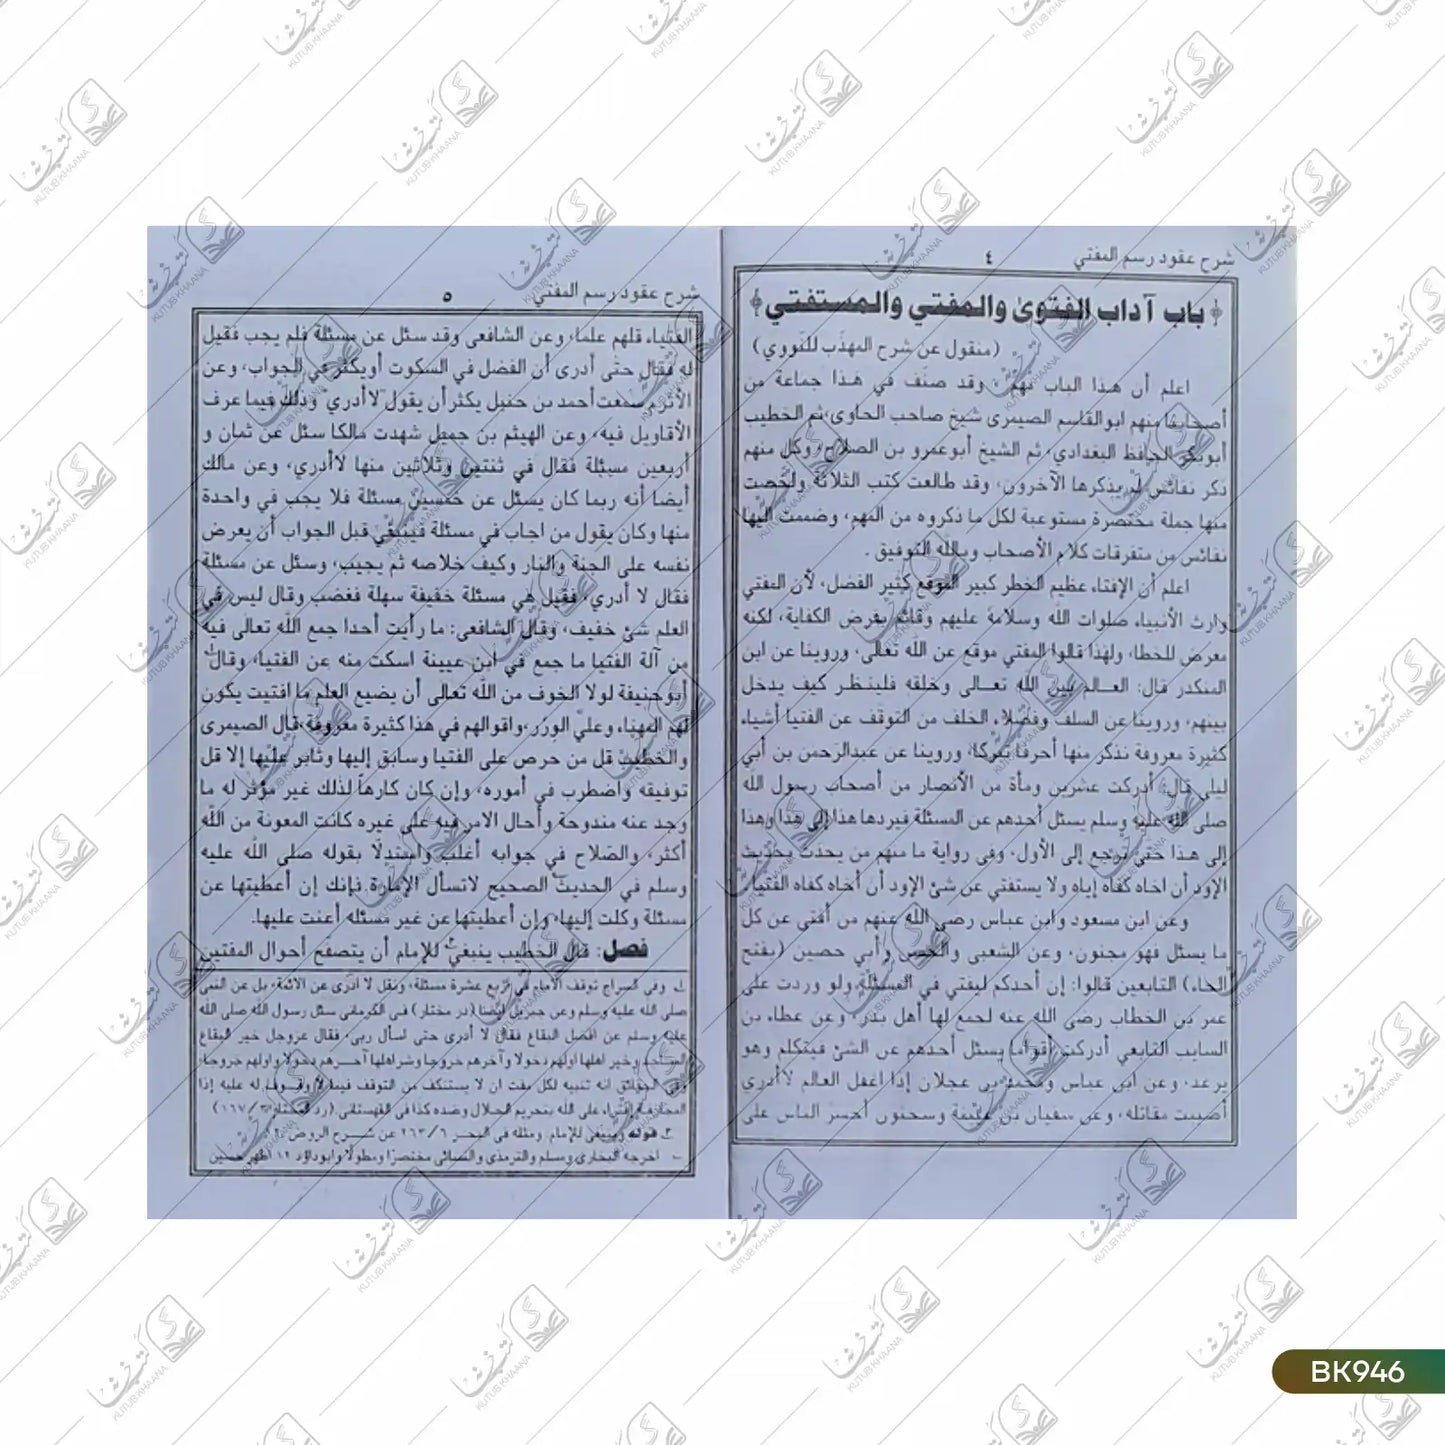 شرح عقود رسم المفتي
٤
باب آداب الفتوى والمفتي والمستفتي
(منقول عن شرح المهذب للنووي)
اعلم أن هذا الباب مهم، وقد صنف في هذا جماعة من
أصحابنا منهم ابوالقاسم الصيمرى شيخ صاحب الحاوى، ثم الخطيب
أبوبكر الحافظ البغدادي، ثم الشيخ أبوعمرو بن الصلاح، وكل منهم
ذكر نفائس لم يذكرها الآخرون، وقد طالعت كتب الثلاثة ولخصت
منها جملة مختصرة مستوعبة لكل ما ذكروه من المهم، وضممت إليها
نفائس من متفرقات كلام الأصحاب وبالله التوفيق.
اعلم أن الإفتاء عظيم الخطر كبير الموقع كثير الفضل، لأن المفتي
وارث الأنبياء صلوات الله وسلامه عليهم وقائم بفرض الكفاية، لكنه
معرض للخطا، ولهذا قالوا المفتي موقع عن الله تعالى، وروينا عن ابن
المنكدر قال: العالم بين الله تعالى وخلقه فلينظر كيف يدخل
بينهم، وروينا عن السلف وفضلاء الخلف من التوقف عن الفتيا أشياء
كثيرة معروفة نذكر منها أحرفا تبركا، وروينا عن عبدالرحمن بن أبي
ليلى قال: أدركت عشرين ومأة من الأنصار من أصحاب رسول الله
صلى الله عليه وسلم يسئل أحدهم عن المسئلة فيردها هذا إلى هذا وهذا
إلى هذا حتى ترجع إلى الأول، وفي رواية ما منهم من يحدث بحديث
الإود أن اخاه كفاه إياه ولا يستفتي عن شئ الإود أن أخاه كفاه الفتيا،
وعن ابن مسعود وابن عباس رضى الله عنهم من أفتى عن كل
ما يسئل فهو مجنون، وعن الشعبى والحسن وأبي حصين (بفتح
الحاء) التابعين قالوا: إن أحدكم ليفتي في المسئلة ولو وردت على
عمر بن الخطاب رضى الله عنه لجمع لها أهل بدر، وعن عطاء بن
السايب التابعي أدركت أقواما يسئل أحدهم عن الشئ فيتكلم وهو
يرعد، وعن ابن عباس ومحمد بن عجلان إذا اغفل العالم لاأدري
أصيبت مقاتله، وعن سفيان بن عيينة وسحنون أجسر الناس على
شرح عقود رسم المفتي
٥
الفتياء قلهم علما، وعن الشافعى وقد سئل عن مسئلة فلم يجب فقيل
له فقال حتى أدرى أن الفضل في السكوت أو في الجواب، وعن
الأثرم سمعت أحمد بن حنبل يكثر أن يقول "لا أدري" وذلك فيما عرف
الأقاويل فيه، وعن الهيثم بن جميل شهدت مالكا سئل عن ثمان و
أربعين مسئلة فقال في ثنتين وثلاثين منها لاأدري، وعن مالك
أيضا أنه ربما كان يسئل عن خمسين مسئلة فلا يجب في واحدة
منها وكان يقول من اجاب في مسئلة فينبغي قبل الجواب أن يعرض
نفسه على الجنة والنار وكيف خلاصه ثم يجيب، وسئل عن مسئلة
فقال لا أدري، فقيل هي مسئلة خفيفة سهلة فغضب وقال ليس في
العلم شئ خفيف، وقال الشافعى: ما رأيت أحدا جمع الله تعالى فيه
من آلة الفتيا ما جمع في ابن عيينة اسكت منه عن الفتيا، وقال
أبوحنيفة لولا الخوف من الله تعالى أن يضيع العلم ما افتيت يكون
لهم المهناء وعلي الوزر، واقوالهم في هذا كثيرة معروفة، قال الصيمرى
والخطيب قل من حرص على الفتيا وسابق إليها وثابر عليها إلا قل
توفيقه واضطرب في أموره، وإن كان كارهاً لذلك غير مؤثر له ما
وجد عنه مندوحة وأحال الامر فيه على غيره كانت المعونة من الله
أكثر، والصلاح في جوابه أغلب واستدلا بقوله صلى الله عليه
وسلم في الحديث الصحيح لاتسأل الإمارة فإنك إن أعطيتها عن
مسئلة وكلت إليها، وإن أعطيتها عن غير مسئله أعنت عليها.
فصل: قال الخطيب ينبغي للإمام أن يتصفح أحوال المفتين
وفي السراج توقف الامام في اربع عشرة مسئلة، ونقل لا أدرى عن الائمة، بل عن النبى
صلى الله عليه وسلم وعن جبريل ايضا (در مختار) في الكرمانى سئل رسول الله صلى الله
عليه وسلم عن افضل البقاع فقال لا أدرى حتى اسأل ربى، فقال عزوجل خير البقاع
المساجد وخير اهلها اولهم دخولا وآخرهم خروجا وشراهلها آخرهم دخولا واولهم خروجا،
وفى الحقائق انه تنبيه لكل مفت ان لا يستنكف من التوقف فيما لا وقوف له عليه إذا
المجازفة افتراء على الله بتحريم الحلال وضده كذا في القهستانى (رد المحتار
قوله وينبغى للإمام ومثله في البحر ٢٦٣/٦ عن شرح الروض
اخرجه البخارى ومسلم والترمذى والنسائى مختصرًا ومطولا وابوداؤد ١٢ اظهر حسين
كتب خانہ
KUTUB KHAANA
BK946